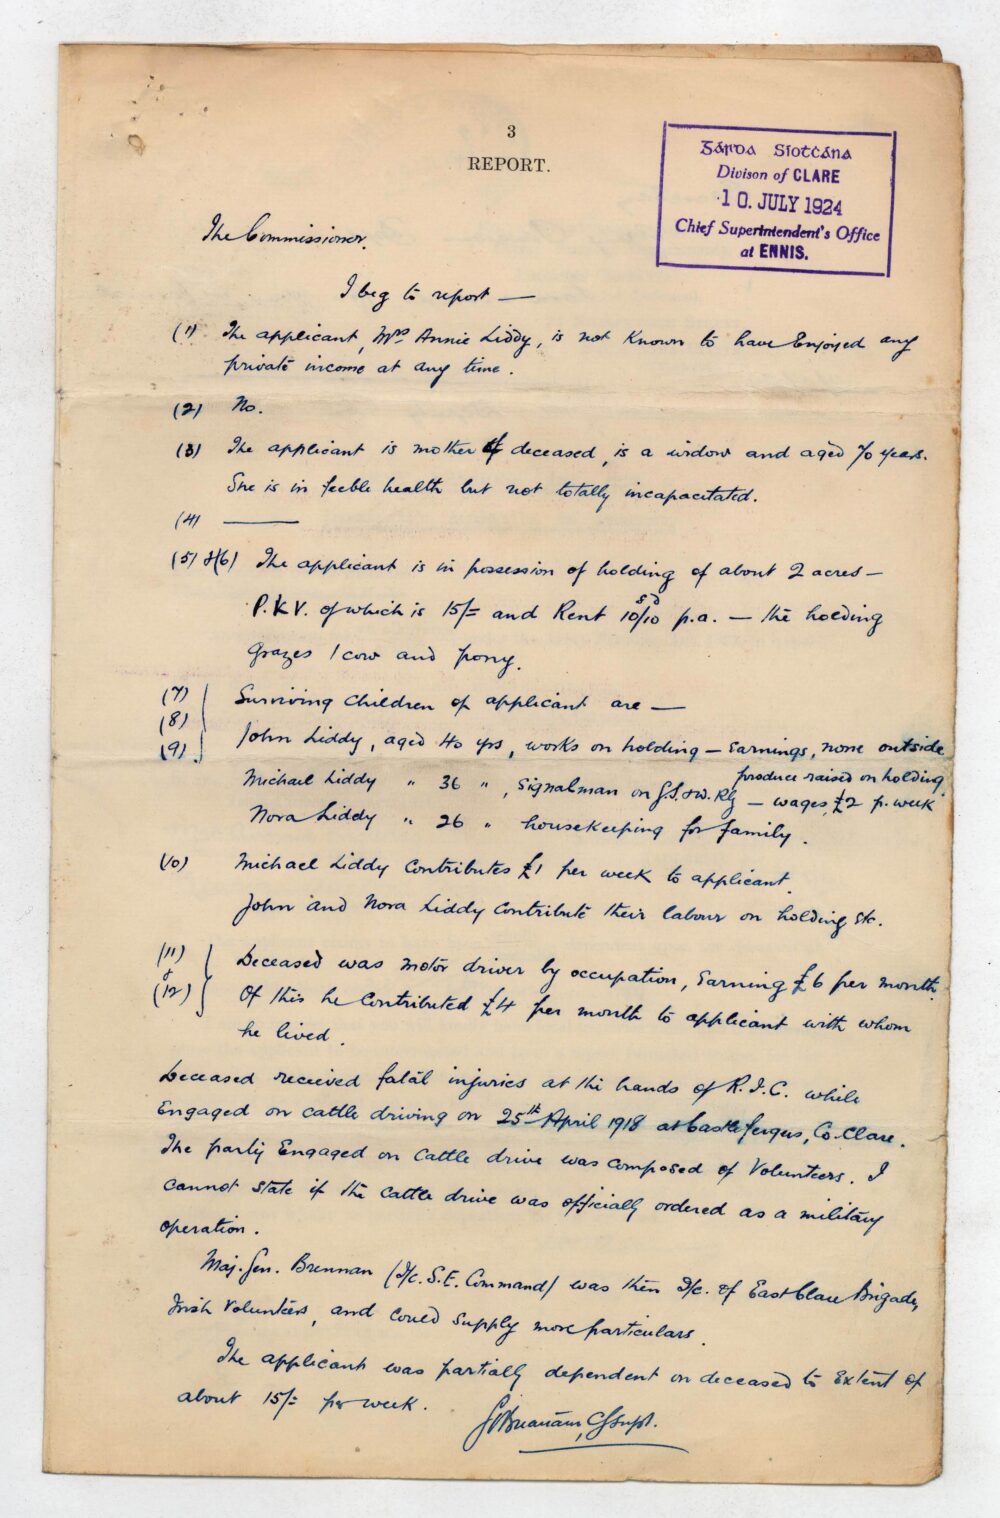 3
REPORT.
Gárda Síotcána
Divison of CLARE
10. JULY 1924
Chief Superintendent's Office
at ENNIS.
The Commissioner.
I beg to report —
(1) The applicant, Mrs Annie Liddy, is not known to have enjoyed any
private income at any time.
(2) No.
(3) The applicant is mother of deceased, is a widow and aged 70 years.
She is in feeble health but not totally incapacitated.
(4) ———
(5) & (6) The applicant is in possession of holding of about 2 acres —
P.L.V. of which is 15/= and Rent 10s/10d p.a. — the holding
grazes 1 cow and pony.
(7) Surviving children of applicant are —
(8)
(9) John Liddy, aged 40 yrs, works on holding — earnings, none outside
produce raised on holding.
Michael Liddy " 36 ", Signalman on G.S. & W. Rly — wages, £2 p. week
Nora Liddy " 26 " housekeeping for family.
(10) Michael Liddy contributes £1 per week to applicant.
John and Nora Liddy contribute their labour on holding etc.
(11) Deceased was motor driver by occupation, earning £6 per month.
&
(12) Of this he contributed £4 per month to applicant with whom
he lived.
Deceased received fatal injuries at the hands of R.I.C. while
engaged on cattle driving on 25th April 1918 at Castlefergus, Co. Clare.
The party engaged on cattle drive was composed of Volunteers. I
cannot state if the cattle drive was officially ordered as a military
operation.
Maj. Gen. Brennan (I/c. S.E. Command) was then I/c. of East Clare Brigade,
Irish Volunteers, and could supply more particulars.
The applicant was partially dependent on deceased to extent of
about 15/= per week.
C/Supt.